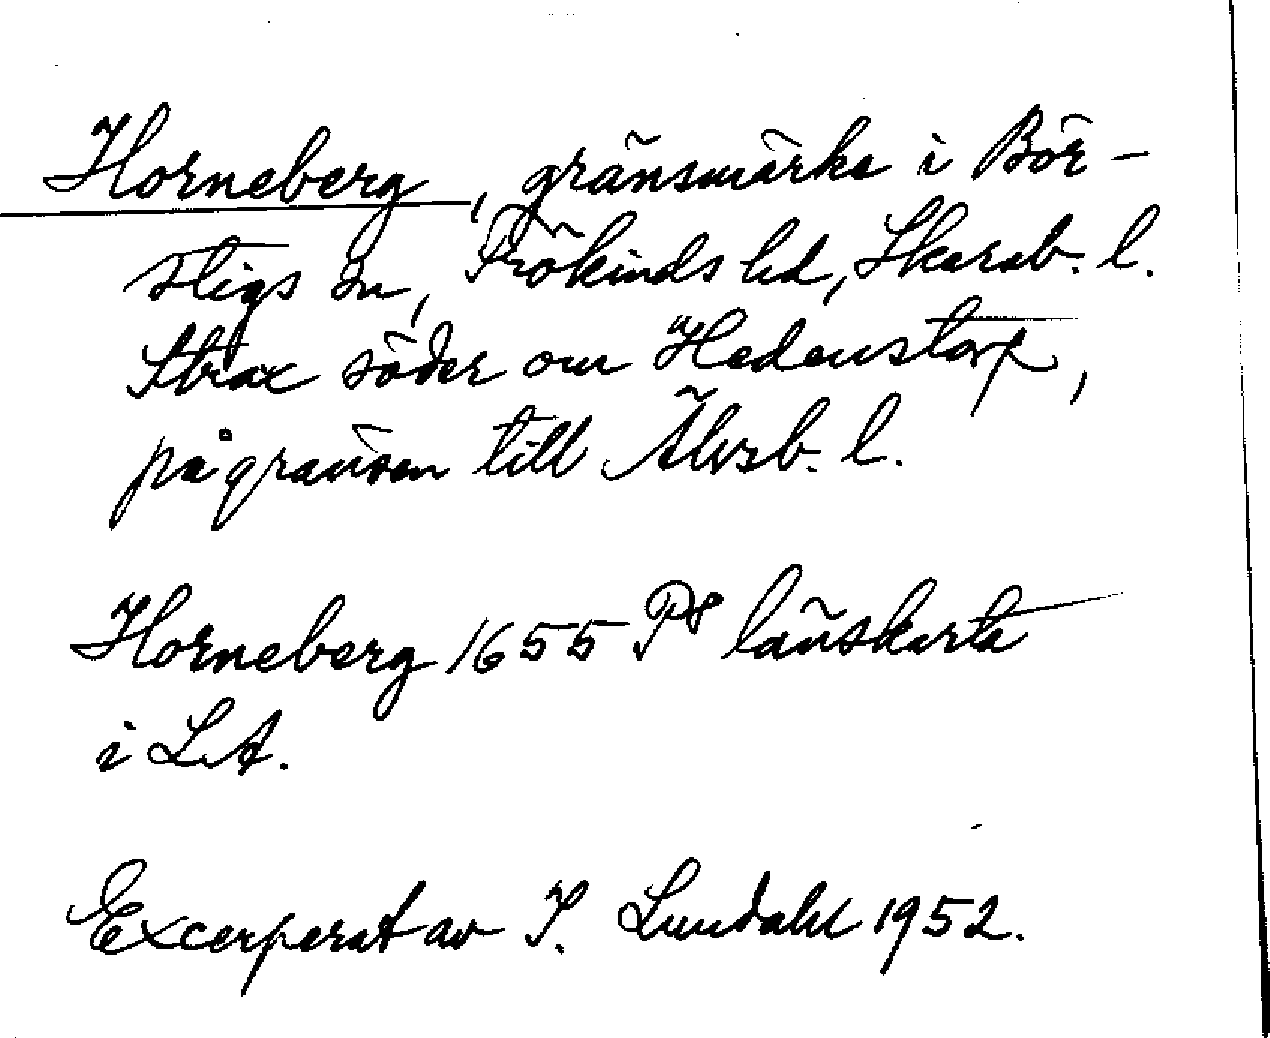 Horneberg, gränsmärke i Bör-
stigs sn, Frökinds hd, Skarab. l.
Strax söder om Hedenstorp,
på gränsen till Älvsb. l.
Horneberg 1655 P8 länskarta
i LA.
Excerperat av I. Lundahl 1952.